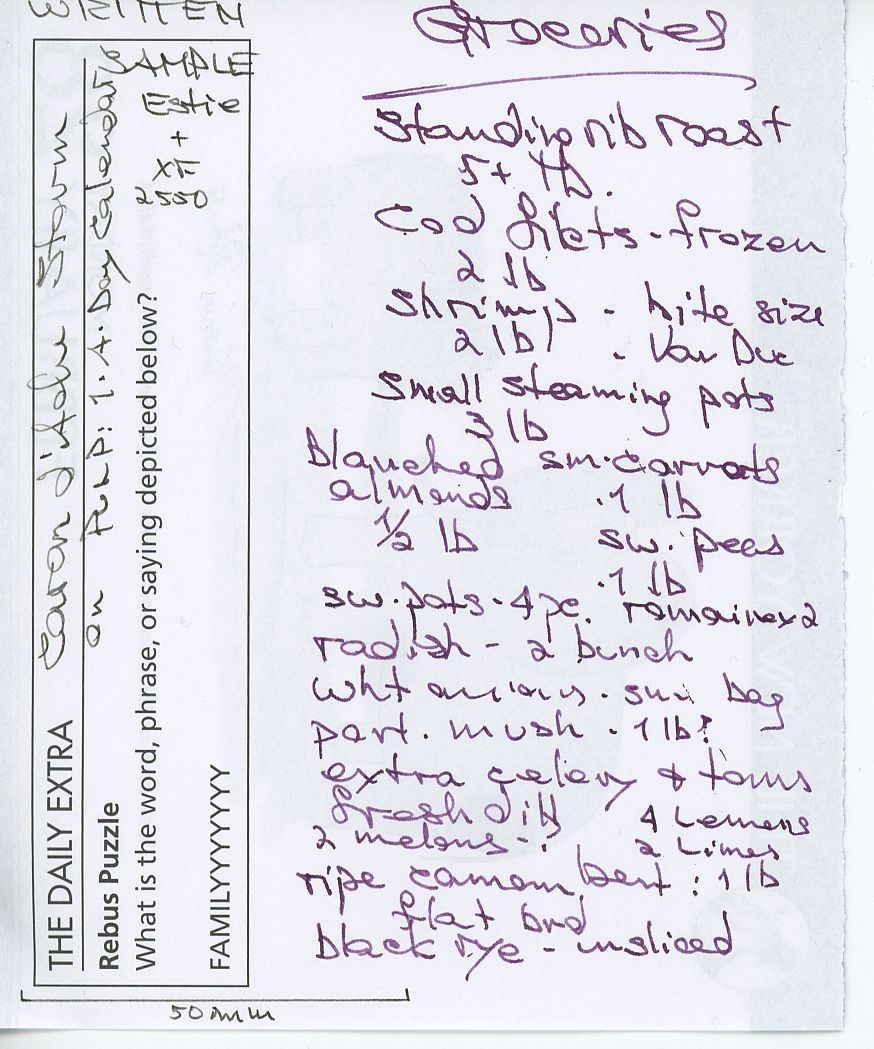 WRITTEN
SAMPLE
Estie
+
2550
Caran d'Ache Storm
on PULP: 1·A·Day Calendar's
THE DAILY EXTRA
Rebus Puzzle
What is the word, phrase, or saying depicted below?
FAMILYYYYYYYY
50 mm
Groceries
Standing rib roast
5+ lb.
Cod filets - frozen
2 lb
Shrimps - bite size
2 lb - Van Dee
Small steaming pots
3 lb
Blanched sm. carrots
almonds · 1 lb
1/2 lb sw. peas
· 1 lb
sw. pots - 4 pc. romaine x 2
radish - 2 bunch
wht onions · sm bag
port. mush · 1 lb?
extra celery & toms
fresh dill 4 Lemons
2 melons - ? 2 Limes
ripe camembert : 1 lb
flat brd
black rye - unsliced